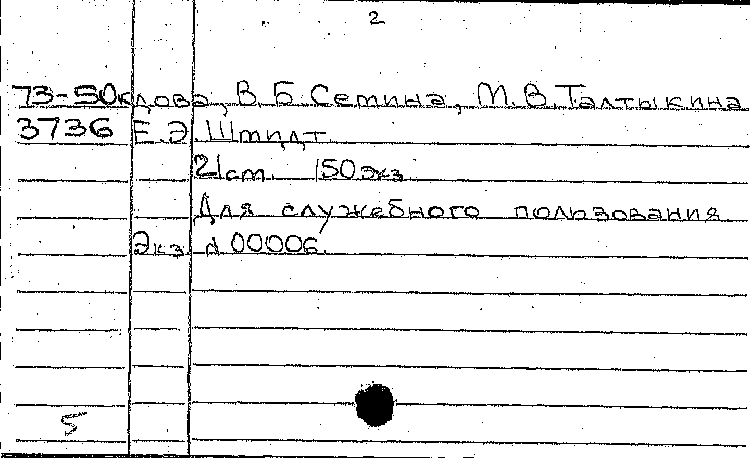 2
73-50кдова, В.Б. Семина, М.В. Талтыкина
3736 Е.Э. Штидт.
21 ст. 150 экз.
Для служебного пользования
Экз. № 00006.
5